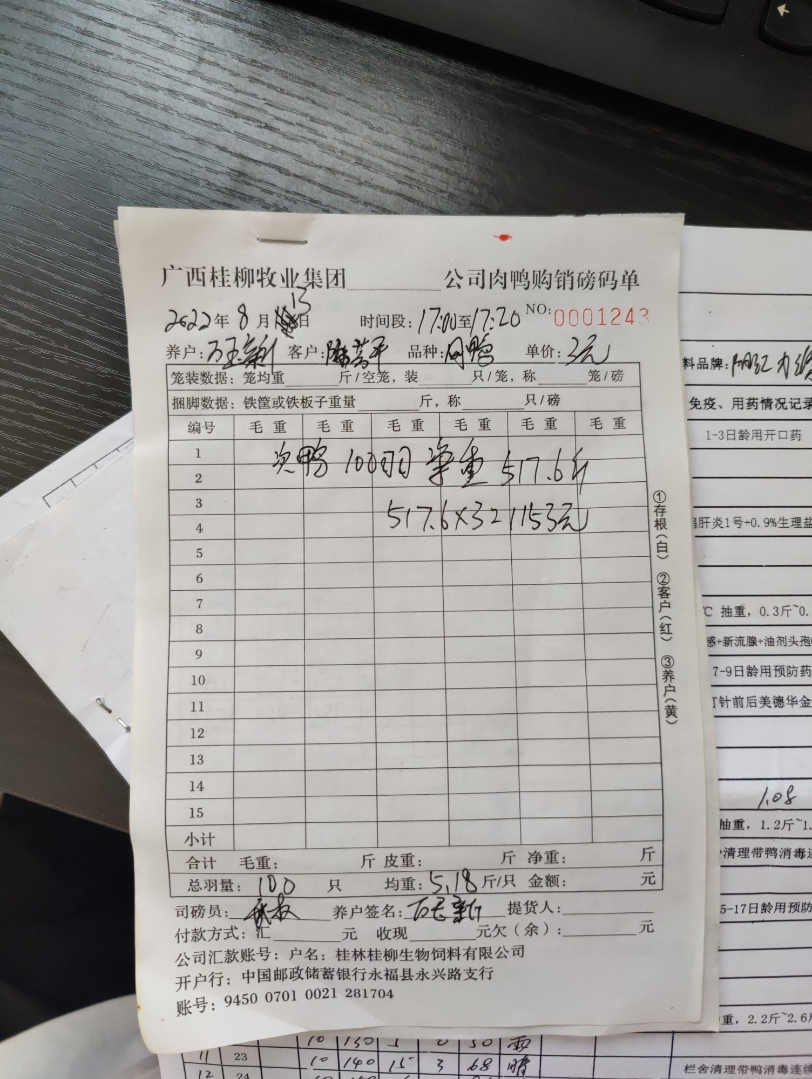 广西桂柳牧业集团________公司肉鸭购销磅码单
2022年8月13日 时间段:17:00至17:20 NO:0001243
养户:万玉新 客户: 品种:肉鸭 单价:3元
笼装数据:笼均重______斤/空笼,装______只/笼,称______笼/磅
捆脚数据:铁筐或铁板子重量______斤,称______只/磅
编号 毛重 毛重 毛重 毛重 毛重 毛重
1
次鸭 100羽 净重 517.6斤
2
3
517.6×3=1153元
4
5
6
7
8
9
10
11
12
13
14
15
小计
合计 毛重: 斤 皮重: 斤 净重: 斤
总羽量:100 只 均重:5.18斤/只 金额: 元
司磅员: 养户签名:万玉新 提货人:
付款方式:汇______元 收现______元欠(余):______元
公司汇款账号:户名:桂林桂柳生物饲料有限公司
开户行:中国邮政储蓄银行永福县永兴路支行
账号:9450 0701 0021 281704
①存根(白) ②客户(红) ③养户(黄)
料品牌:
免疫、用药情况记录
1-3日龄用开口药
肝炎1号+0.9%生理盐
℃ 抽重,0.3斤~0.
感+新流腺+油剂头孢
7-9日龄用预防药
打针前后美德华金
1.08
抽重,1.2斤~1.
清理带鸭消毒连
5-17日龄用预防
重,2.2斤~2.6斤
栏舍清理带鸭消毒连续
10 130 50
11 23 10 140 15 3 68 晴
12 24